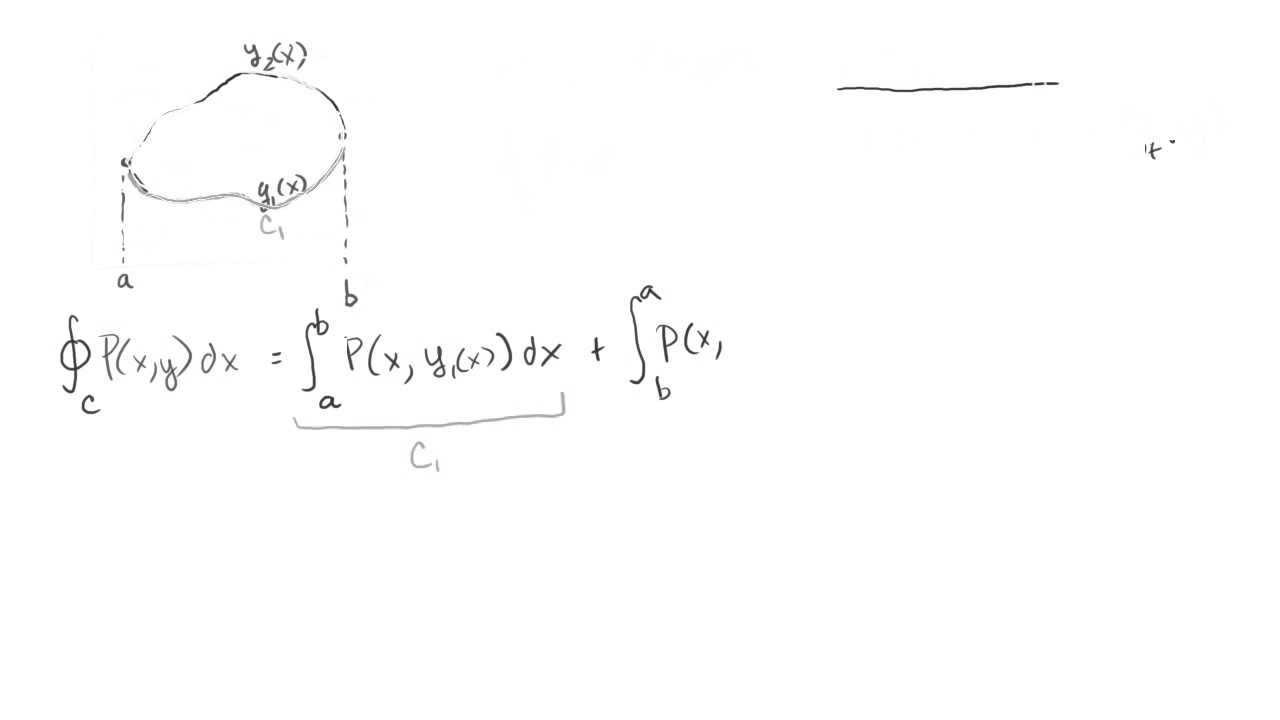 y₂(x)
y₁(x)
C₁
a
b
∮_C P(x,y) dx = ∫_a^b P(x, y₁(x)) dx + ∫_b^a P(x,
C₁